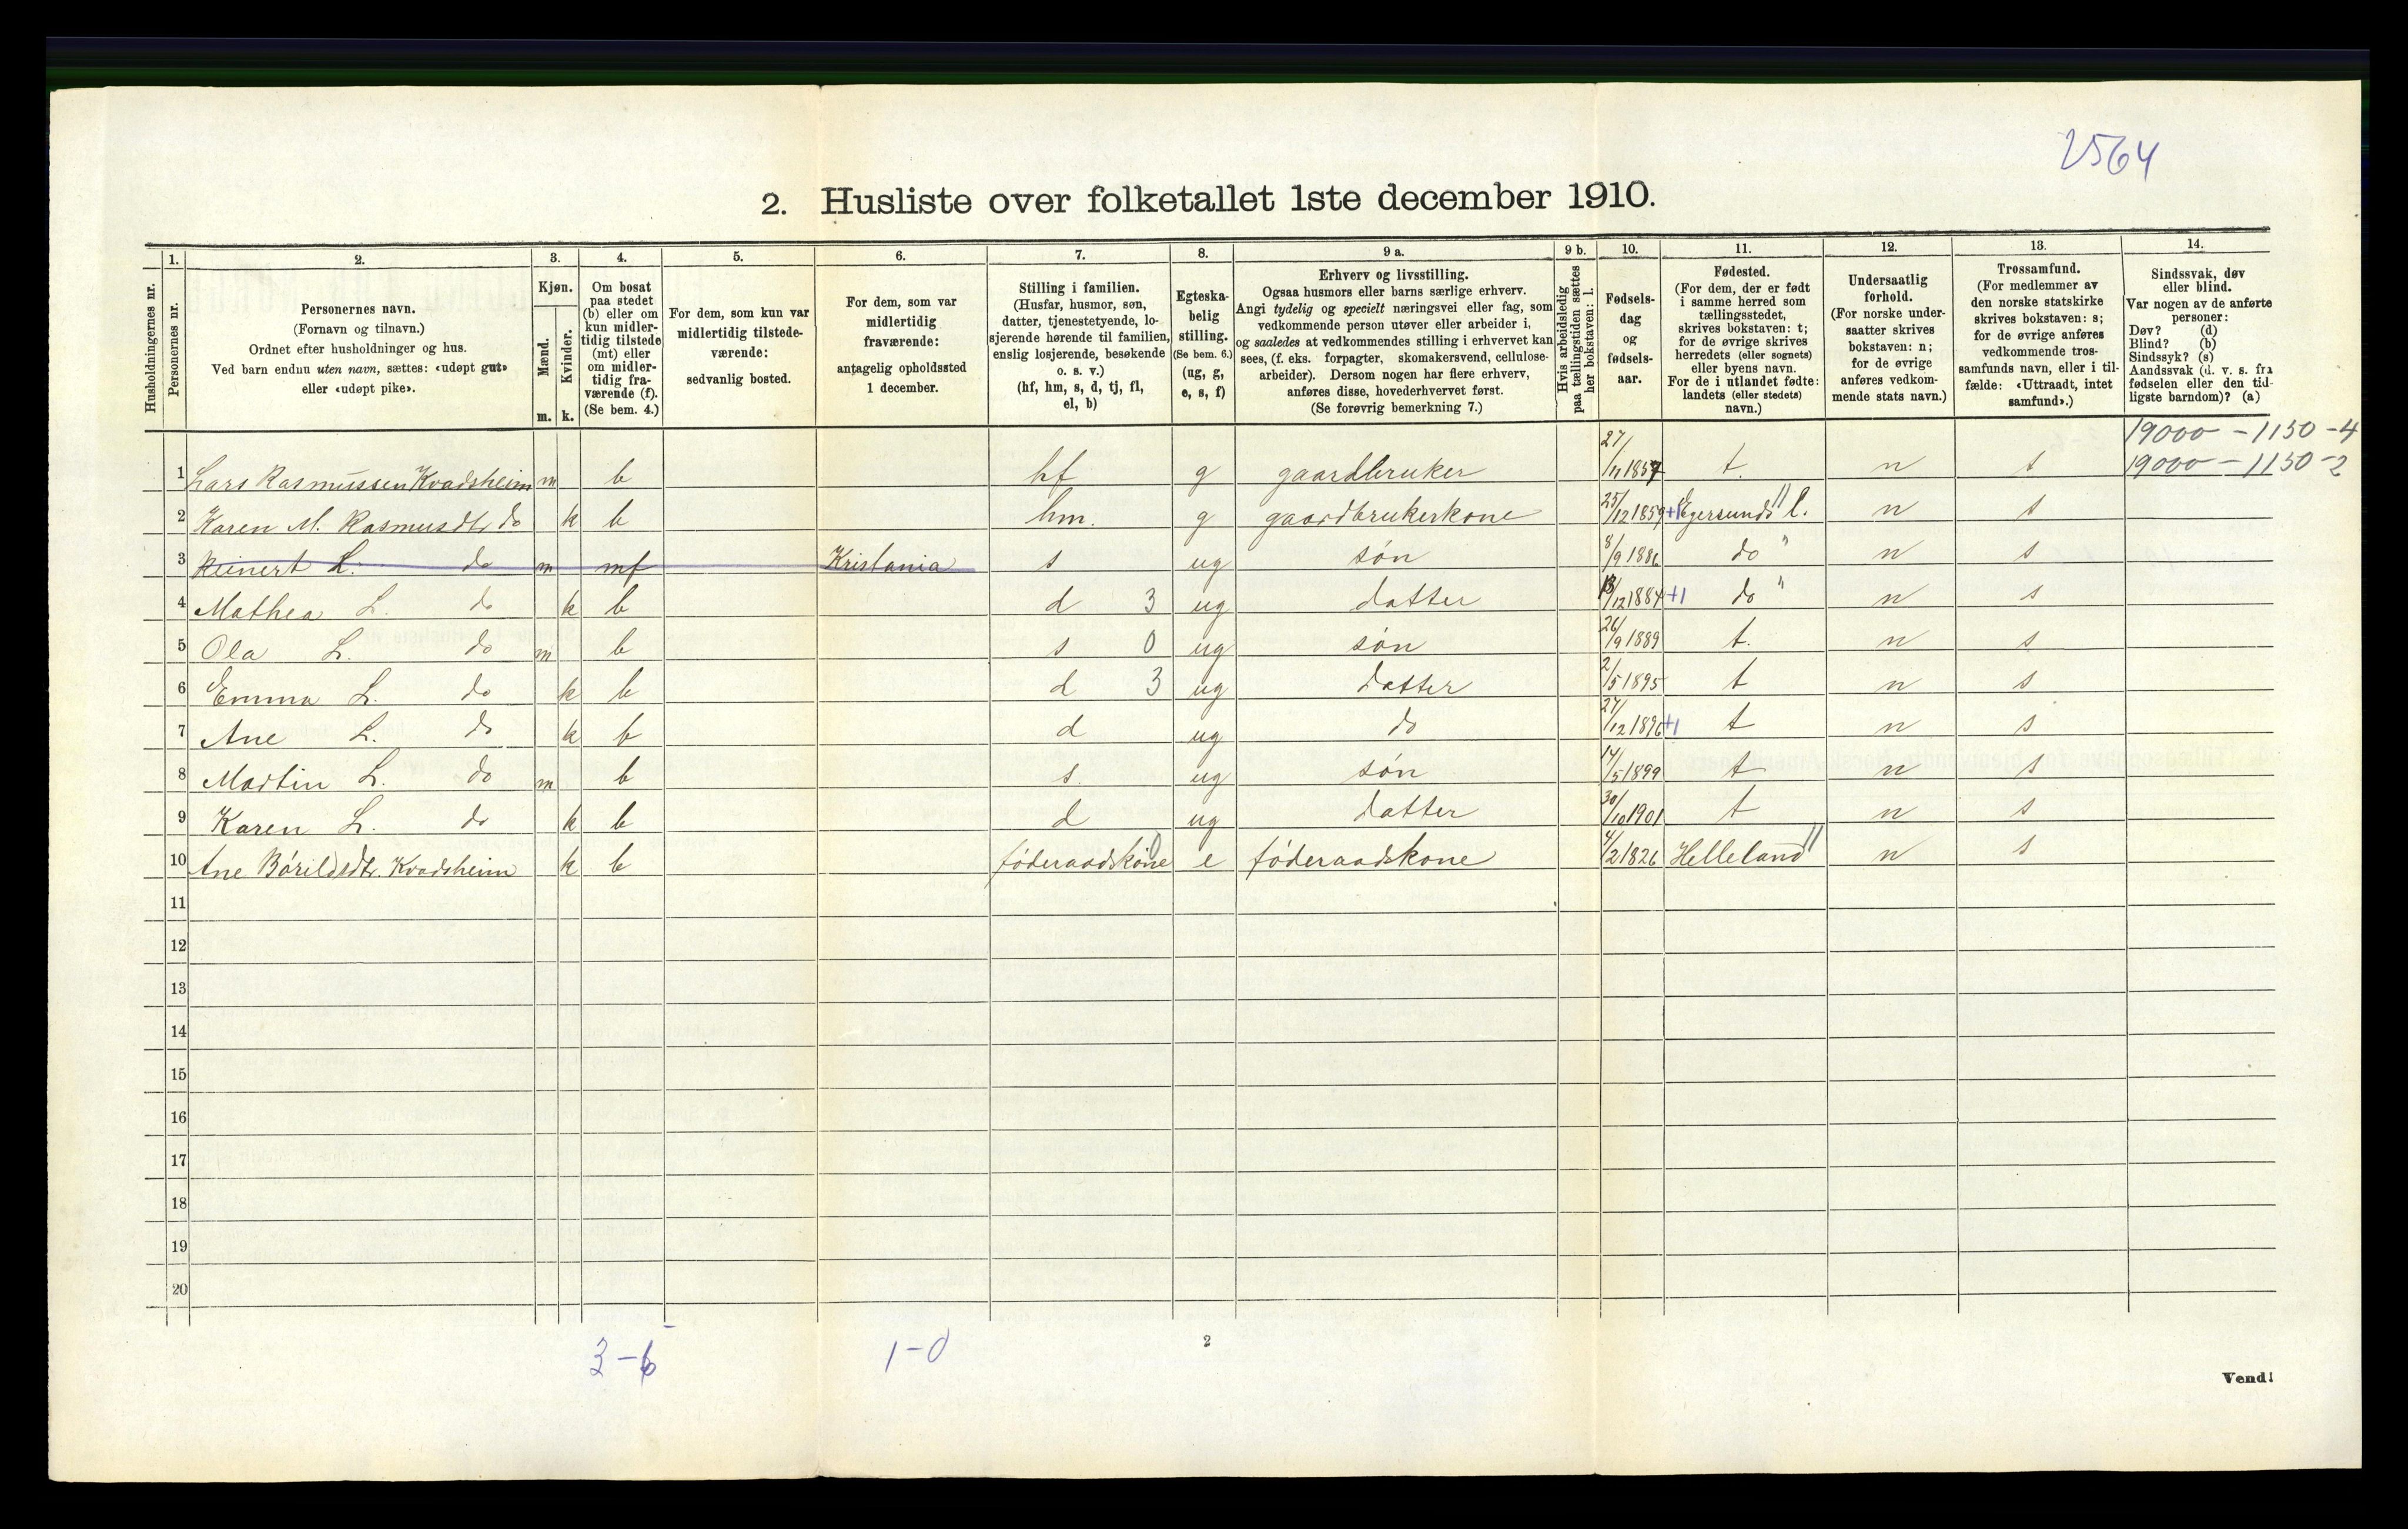 2564
2. Husliste over folketallet 1ste december 1910.
Husholdningernes nr.
1. Personernes nr.
2. Personernes navn.
(Fornavn og tilnavn.)
Ordnet efter husholdninger og hus.
Ved barn endnu uten navn, sættes: «udøpt gut»
eller «udøpt pike».
3. Kjøn.
Mænd. m.
Kvinder. k.
4. Om bosat
paa stedet
(b) eller om
kun midler-
tidig tilstede
(mt) eller
om midler-
tidig fra-
værende (f).
(Se bem. 4.)
5. For dem, som kun var
midlertidig tilstede-
værende:
sedvanlig bosted.
6. For dem, som var
midlertidig
fraværende:
antagelig opholdssted
1 december.
7. Stilling i familien.
(Husfar, husmor, søn,
datter, tjenestetyende, lo-
sjerende hørende til familien,
enslig losjerende, besøkende
o. s. v.)
(hf, hm, s, d, tj, fl,
el, b)
8. Egteska-
belig
stilling.
(Se bem. 6.)
(ug, g,
e, s, f)
9 a. Erhverv og livsstilling.
Ogsaa husmors eller barns særlige erhverv.
Angi tydelig og specielt næringsvei eller fag, som
vedkommende person utøver eller arbeider i,
og saaledes at vedkommendes stilling i erhvervet kan
sees, (f. eks. forpagter, skomakersvend, cellulose-
arbeider). Dersom nogen har flere erhverv,
anføres disse, hovederhvervet først.
(Se forøvrig bemerkning 7.)
9 b. Hvis arbeidsledig
paa tællingstiden sættes
her bokstaven: l.
10. Fødsels-
dag
og
fødsels-
aar.
11. Fødested.
(For dem, der er født
i samme herred som
tællingsstedet,
skrives bokstaven: t;
for de øvrige skrives
herredets (eller sognets)
eller byens navn.
For de i utlandet fødte:
landets (eller stedets)
navn.)
12. Undersaatlig
forhold.
(For norske under-
saatter skrives
bokstaven: n;
for de øvrige
anføres vedkom-
mende stats navn.)
13. Trossamfund.
(For medlemmer av
den norske statskirke
skrives bokstaven: s;
for de øvrige anføres
vedkommende tros-
samfunds navn, eller i til-
fælde: «Uttraadt, intet
samfund».)
14. Sindssvak, døv
eller blind.
Var nogen av de anførte
personer:
Døv? (d)
Blind? (b)
Sindssyk? (s)
Aandssvak (d. v. s. fra
fødselen eller den tid-
ligste barndom)? (a)
19000 - 1150 - 4
1 Lars Rasmussen Kvadsheim m b hf g gaardbruker 27/11 1857 t. n s 19000 - 1150 - 2
2 Karen M. Rasmusdtr do k b hm. g gaardbrukerkone 25/12 1859 +1 Egersunds l. n s
3 Reinert L. do m mf Kristania s ug søn 8/9 1886 do " n s
4 Mathea L. do k b d 3 ug datter 13/12 1884 +1 do " n s
5 Ola L. do m b s 0 ug søn 26/9 1889 t. n s
6 Emma L. do k b d 3 ug datter 2/5 1895 t n s
7 Ane L. do k b d ug do 27/12 1896 +1 t n s
8 Martin L. do m b s. ug søn 14/5 1899 t n s
9 Karen L. do k b d ug datter 30/10 1901 t n s
10 Ane Bórildsdtr. Kvadsheim k b føderaadskone 0 e føderaadskone 4/2 1826 Helleland n s
11
12
13
14
15
16
17
18
19
20
3 - 6 1 - 0
2
Vend!